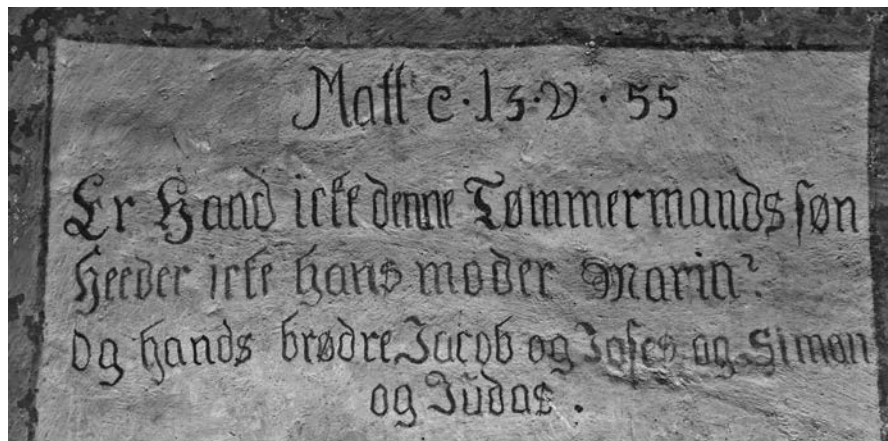 Matt c · 13 · V · 55
Er Haad icke denne Tømmermands søn
Heeder icke hans moder Maria?
Og hands brødre Jacob og Joses og Simon
og Jŭdas .